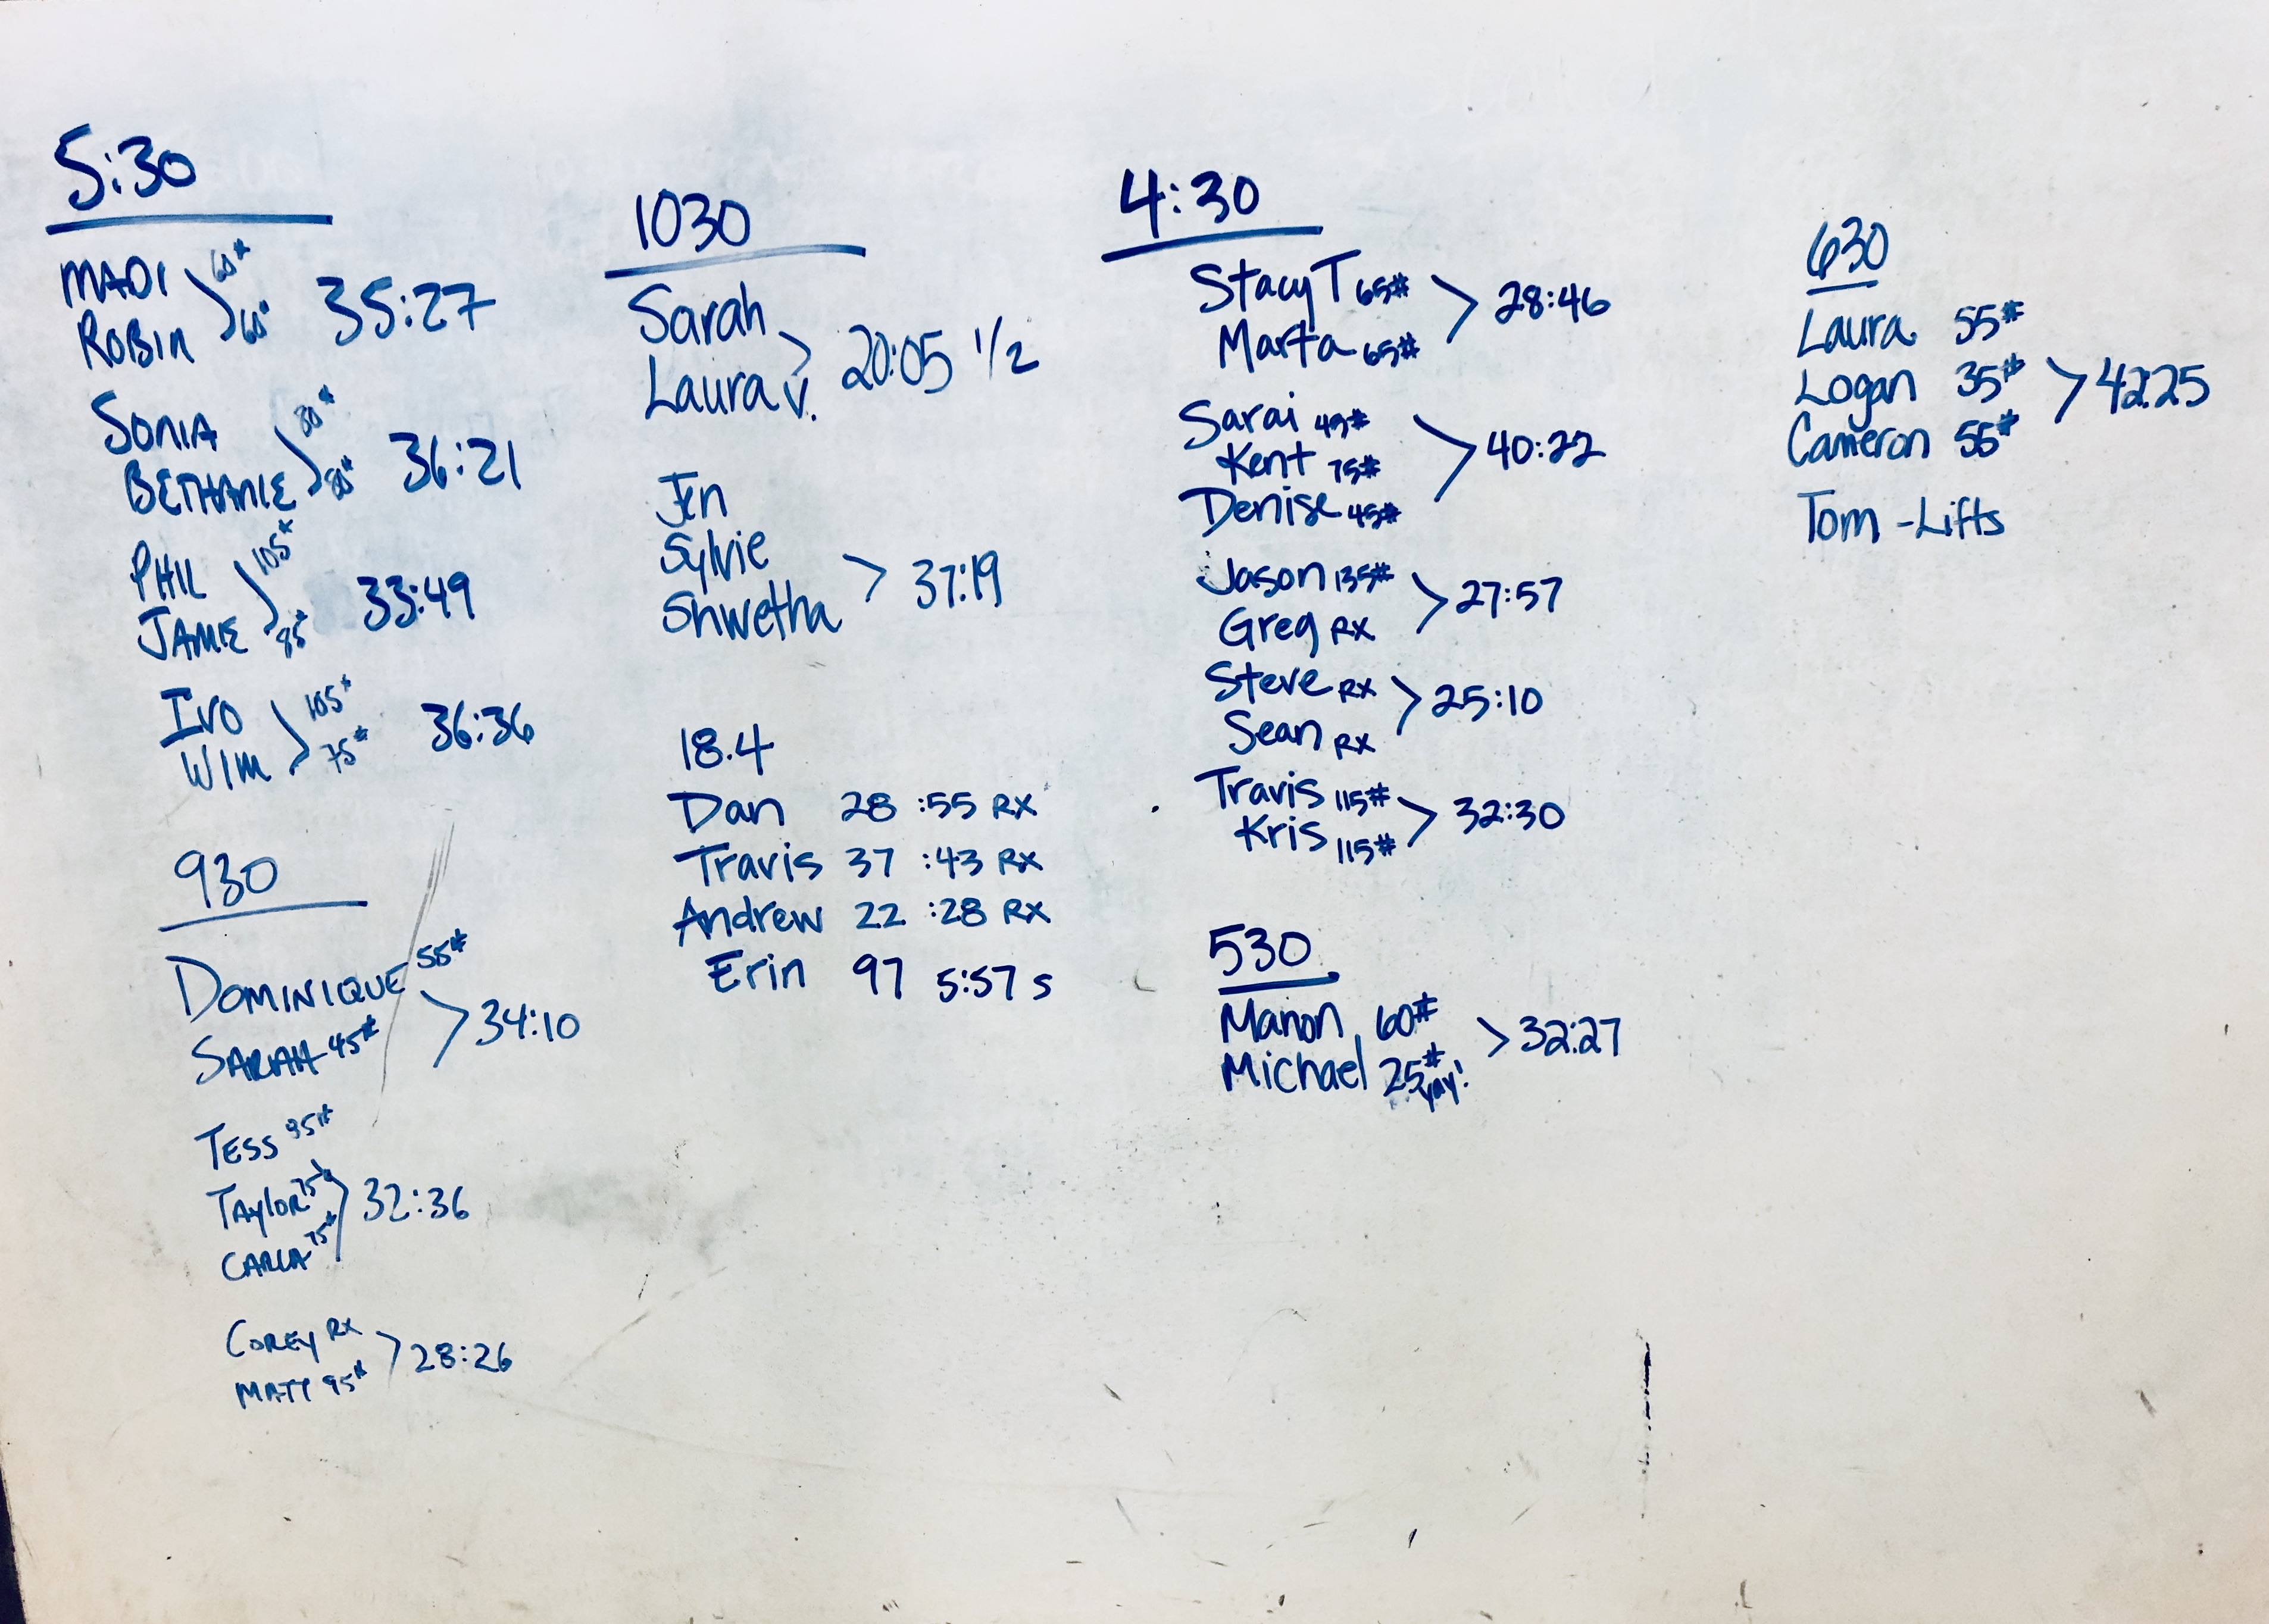 5:30
MADI 60#
ROBIN 60# 35:27
SONIA 80#
BETHANIE 80# 36:21
PHIL 105#
JAMIE 85# 33:49
IVO 105#
WIM 75# 36:36
930
DOMINIQUE 55#
SARAH 45# > 34:10
TESS 95#
TAYLOR 75#
CARLA 75# 32:36
COREY RX
MATT 95# > 28:26
1030
Sarah
Laura V. > 20:05 1/2
Jen
Sylvie
Shwetha > 37:19
18.4
Dan 28 :55 RX
Travis 37 :43 RX
Andrew 22 :28 RX
Erin 97 5:57 s
4:30
Stacy T 65#
Marta 65# > 28:46
Sarai 45#
Kent 75# > 40:22
Denise 45#
Jason 135#
Greg RX > 27:57
Steve RX
Sean RX > 25:10
Travis 115#
Kris 115# > 32:30
530
Manon 60#
Michael 25# yay! > 32:27
630
Laura 55#
Logan 35# > 42:25
Cameron 55#
Tom - Lifts